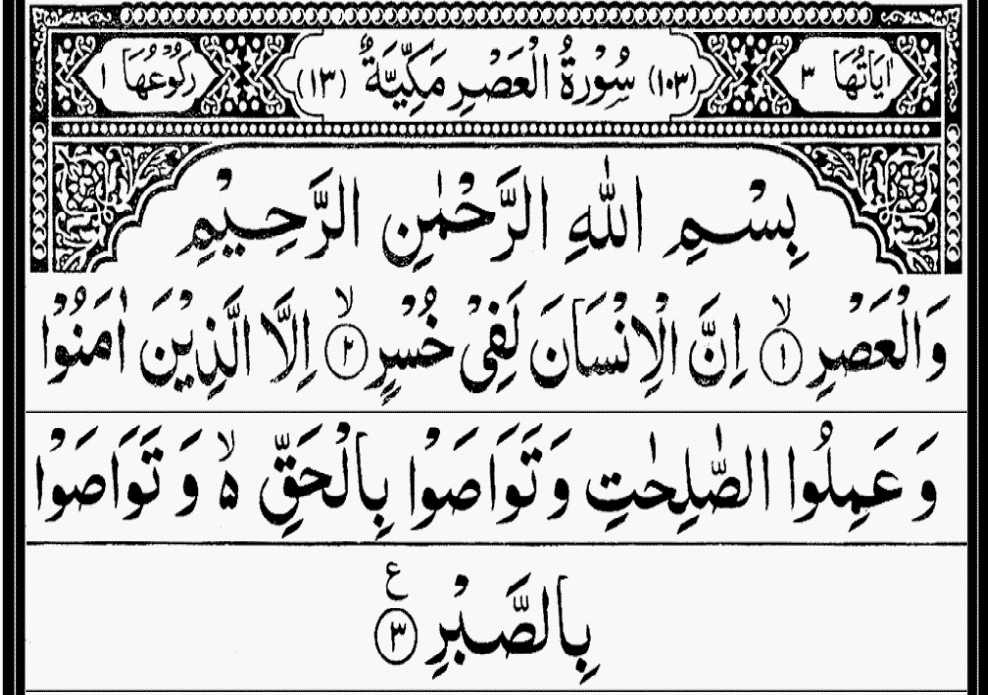 اٰیَاتُهَا ٣ (١٠٣) سُوْرَةُ الْعَصْرِ مَكِّيَّةٌ (١٣) رَكُوْعُهَا ١
بِسْمِ اللّٰهِ الرَّحْمٰنِ الرَّحِيْمِ
وَالْعَصْرِ ۙ﴿١﴾ اِنَّ الْاِنْسَانَ لَفِیْ خُسْرٍ ۙ﴿٢﴾ اِلَّا الَّذِیْنَ اٰمَنُوْا
وَ عَمِلُوا الصّٰلِحٰتِ وَ تَوَاصَوْا بِالْحَقِّ ۙ۵ وَ تَوَاصَوْا
بِالصَّبْرِ ﴿٣﴾ ع